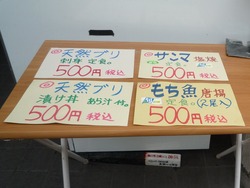 天然ブリ
刺身定食。
500円税込
サンマ塩焼
定食。
500円税込
天然ブリ
漬け丼 あら汁付。
500円税込
もち魚唐揚
定食。(2尾入)
500円税込